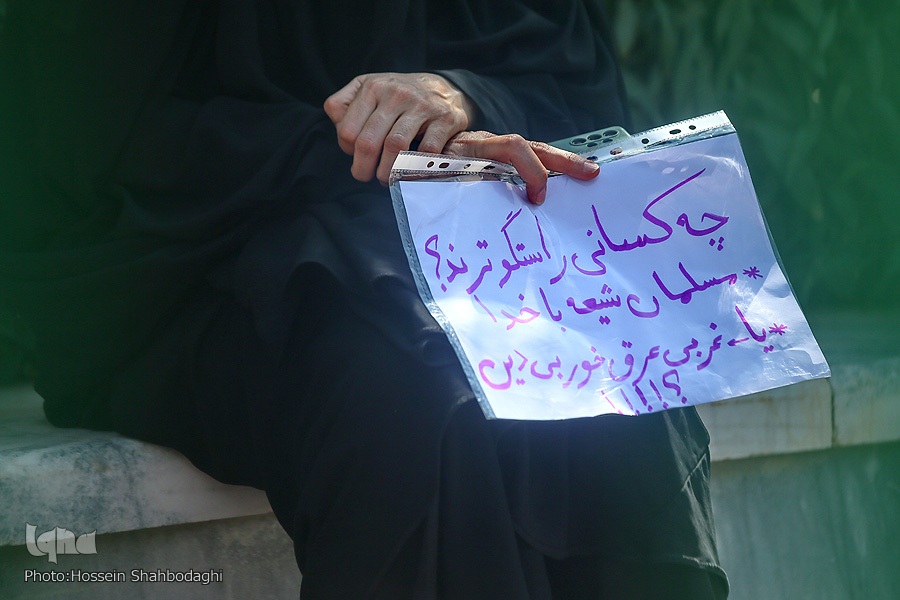 چه کسانی راستگوترند؟
* مسلمان شیعه با خدا
* یا غربی عرق خور بی دین
؟!!!!
iqna
Photo:Hossein Shahbodaghi